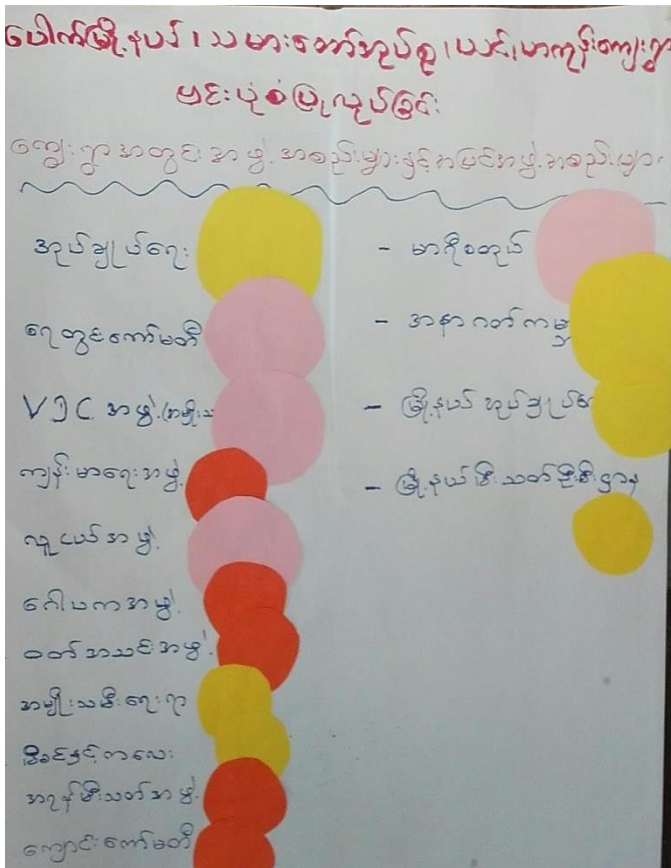 ပေါက်မြို့နယ်၊ သမားတော်အုပ်စု၊ ယင်းမာကုန်းကျေးရွာ
ဗင်းပုံစံပြုလုပ်ခြင်း
ကျေးရွာအတွင်းအဖွဲ့အစည်းများနှင့်အပြင်အဖွဲ့အစည်းများ
အုပ်ချုပ်ရေး
ရေတွင်းကော်မတီ
VDC အဖွဲ့ (အမျိုးသ
ကျန်းမာရေးအဖွဲ့
လူငယ်အဖွဲ့
ဂေါပကအဖွဲ့
ဝတ်အသင်းအဖွဲ့
အမျိုးသမီးရေးရာ
မိခင်နှင့်ကလေး
အရန်မီးသတ်အဖွဲ့
ကျောင်းကော်မတီ
- မာရီစတုပ်
- အနာဂတ်ကမ္ဘာ
- မြို့နယ်အုပ်ချုပ်ရေး
- မြို့နယ်မီးသတ်ဦးစီးဌာန